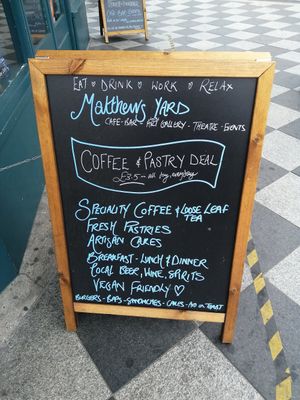 EAT ♡ DRINK ♡ WORK ♡ RELAX
Matthews YARD
CAFE-BAR - ART GALLERY - THEATRE - EVENTS
COFFEE & PASTRY DEAL
£3.5 - all day, everyday
SPECIALITY COFFEE & LOOSE LEAF
TEA
FRESH PASTRIES
ARTISAN CAKES
BREAKFAST - LUNCH & DINNER
LOCAL BEER, WINE, SPIRITS
VEGAN FRIENDLY ♡
BURGERS - BAPS - SANDWICHES - CAKES - ON TOAST